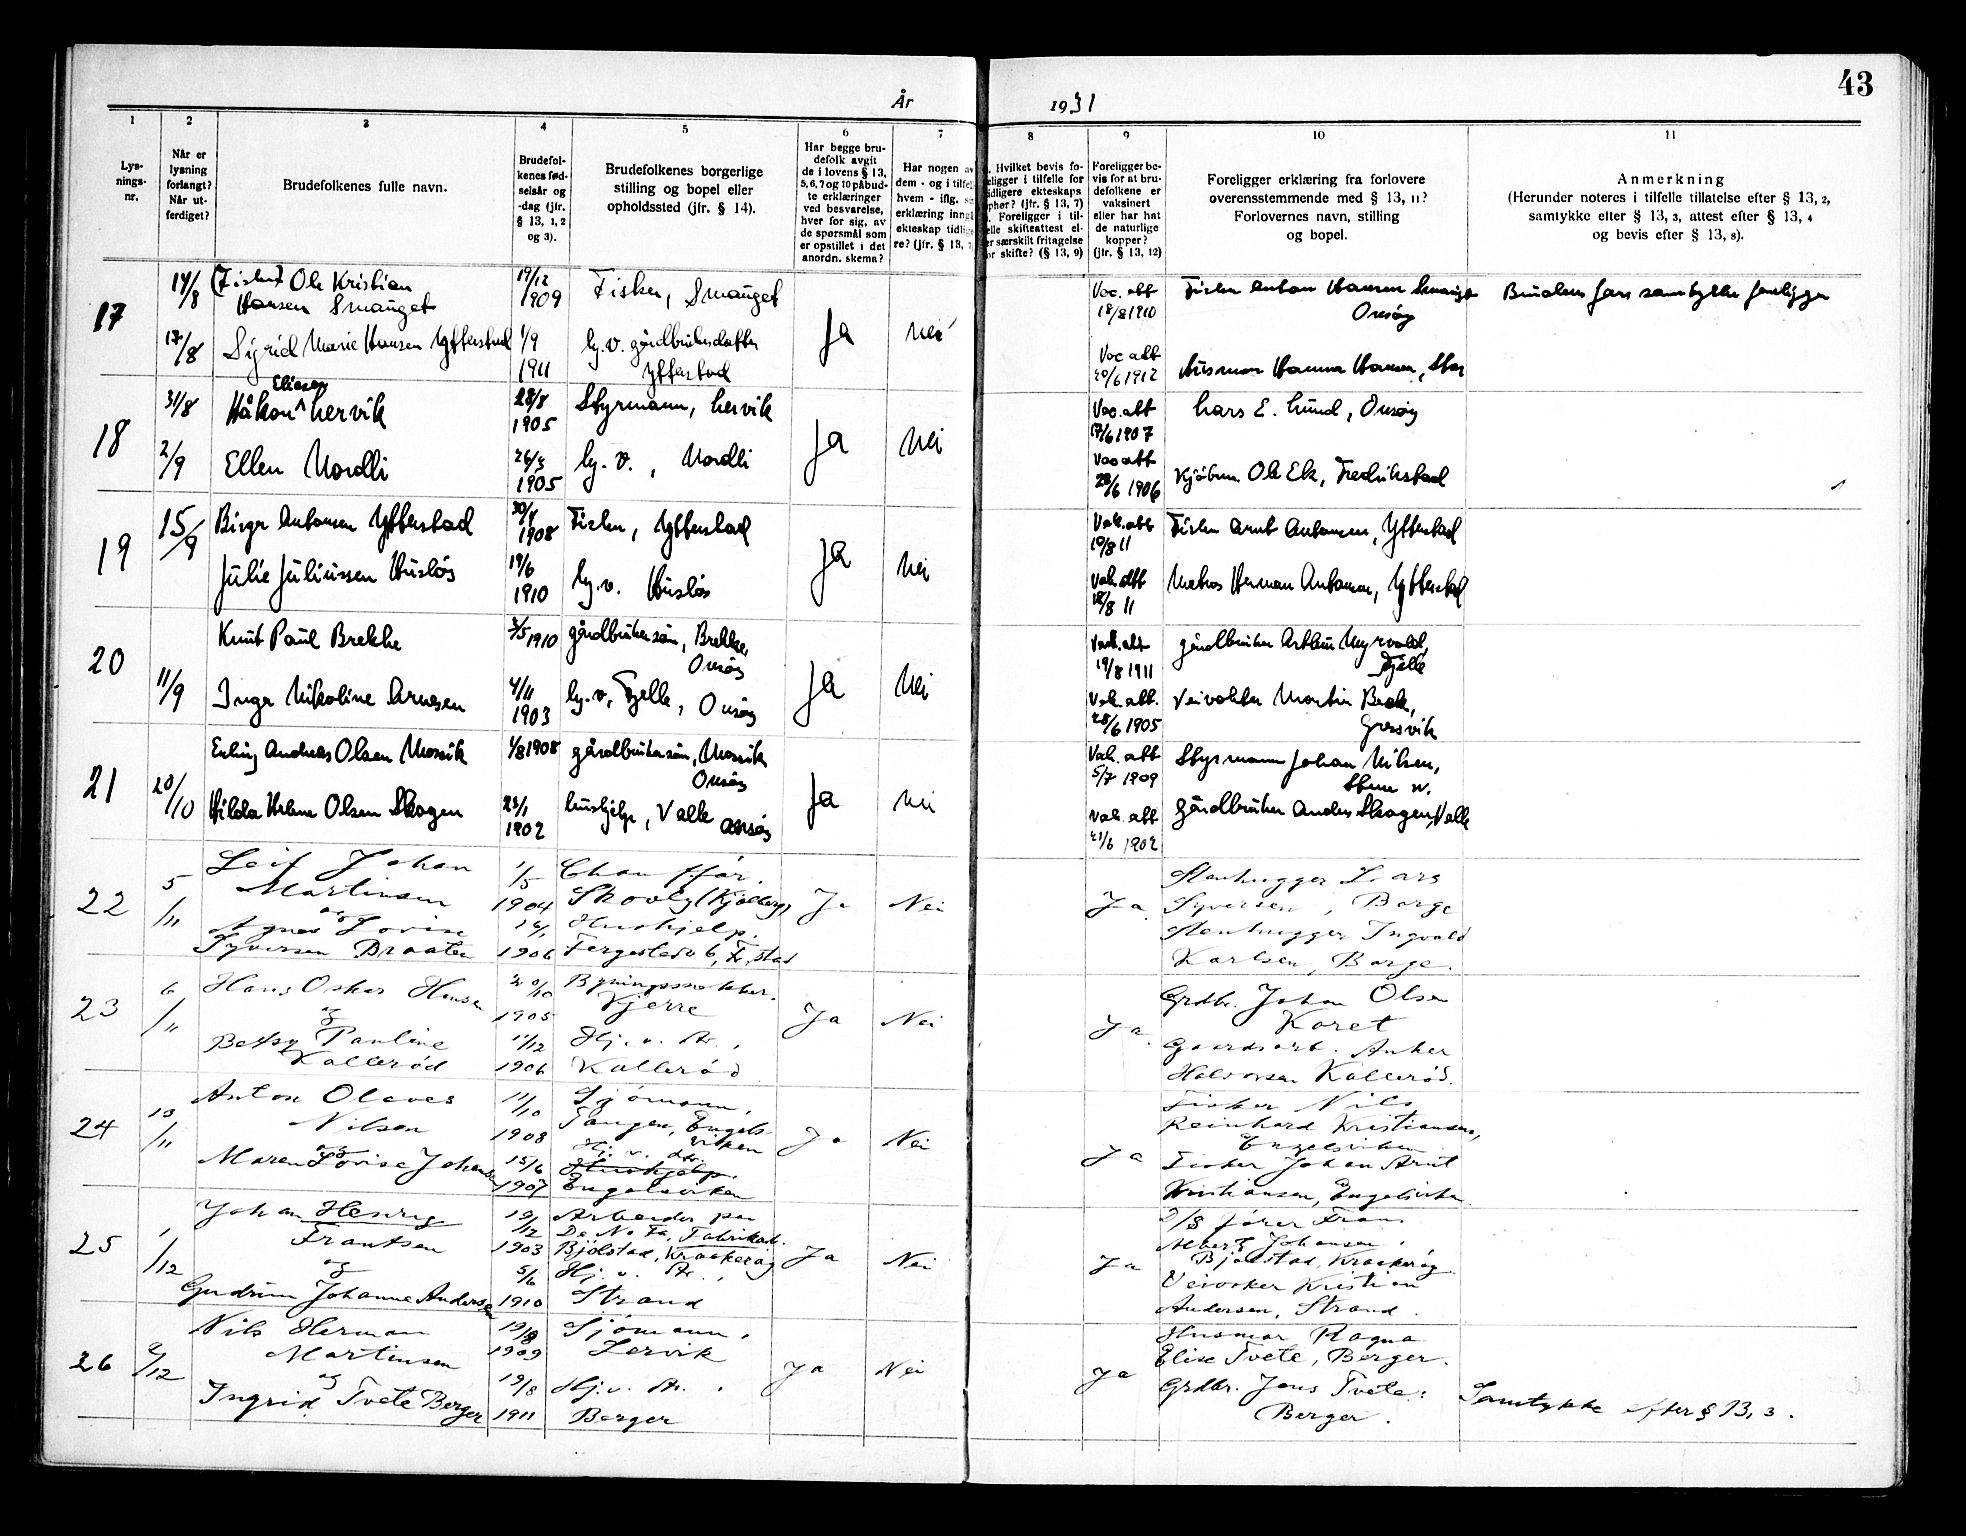 43
År 1931
1 2 3 4 5 6 7 8 9 10 11
Lys-
nings-
nr.
Når er
lysning
forlangt?
Når ut-
ferdiget?
Brudefolkenes fulle navn.
Brudefol-
kenes fød-
selsår og
-dag (jfr.
§ 13, 1, 2
og 3).
Brudefolkenes borgerlige
stilling og bopel eller
opholdssted (jfr. § 14).
Har begge bru-
defolk avgit
de i lovens § 13,
5, 6, 7 og 10 påbud-
te erklæringer
ved besvarelse,
hver for sig, av
de spørsmål som
er opstillet i det
anordn. skema?
Har nogen av
dem - og i tilfel
hvem - iflg. s
erklæring inng
ekteskap tidlige
re? (jfr. § 13, 7
Hvilket bevis fo-
eligger i tilfelle for
idligere ekteskaps
phør? (jfr. § 13, 7)
Foreligger i til-
elle skifteattest el-
er særskilt fritagelse
or skifte? (§ 13, 9)
Foreligger be-
vis for at bru-
defolkene er
vaksinert
eller har hat
de naturlige
kopper?
(jfr. § 13, 12)
Foreligger erklæring fra forlovere
overensstemmende med § 13, 11?
Forlovernes navn, stilling
og bopel.
Anmerkning
(Herunder noteres i tilfelle tillatelse efter § 13, 2,
samtykke efter § 13, 3, attest efter § 13, 4
og bevis efter § 13, 8).
17
14/8
Ole Kristian
Hansen Smauget
19/12
1909
Fisker, Smauget
Ja
Nei
Vac. att
18/8 1910
Fisker Anton Hansen Smauget
Onsøy
Brudens fars samtykke foreligger
17/8
Sigrid Marie Hansen Ytterstad
1/9
1911
hj. v. gårdbrukerdatter
Ytterstad
Vac att
20/6 1912
Husmor Hanna Hansen,
18
31/8
Eliesen
Håkon Lervik
28/8
1905
Styrmann, Lervik
Ja
Nei
Vac. att
17/6 1907
Lars E. Lund, Onsøy
2/9
Ellen Nordli
1905
hj. v., Nordli
Vac att
1906
Kjøbm. Ole Ek, Fredrikstad
19
15/9
Birger Antonsen Ytterstad
1908
Fisker, Ytterstad
Ja
Nei
Vak. att
19/8 11
Fisker Arnt Antonsen, Ytterstad
Julie Juliussen Husløs
19/6
1910
hj. v. Husløs
Vak att
18/8 11
Matros Herman Antonsen, Ytterstad
20
Knut Paul Brekke
1910
gårdbrukersøn, Brekke,
Onsøy
Ja
Nei
Vak. att
19/8 1911
gårdbruker Arthur Myrvold,
Fjelle
11/9
Inga Nikoline Arnesen
4/11
1903
hj. v, Fjelle, Onsøy
Vak. att.
28/6 1905
Veivokter Martin Bæk,
Gressvik
21
Erling Andreas Olsen Mosvik
1/8 1908
gårdbrukersøn, Mosvik
Onsøy
Ja
Nei
Vak. att
5/7 1909
Styrmann Johan Nilsen,
20/10
Hilda Helene Olsen Skogen
23/1
1902
hushjelp, Valle Onsøy
Vak. att
21/6 1902
gårdbruker Anders Skogen, Valle
22
5/11
Leif Johan
Martinsen
og
Agnes Lovise
Syversen Braaten
1/5
1904
1906
Chauffør.
Skovly (Kjølberg)
Hushjelp.
Fergestedv 6, Fr.stad
Ja
Nei
Ja
Stenhugger Lars
Syversen, Borge
Stenhugger Ingvald
Karlsen, Borge.
23
6/11
Hans Oskar Hansen
og
Betsy Pauline
Kallerød
20/10
1905
11/12
1906
Bygningssnekker.
Kjerre
Hj. v. dtr.,
Kallerød
Ja
Nei
Ja.
Grdbr. Johan Olsen
Karet
Gaardsarb. Anker
Halvorsen Kallerød.
24
13/11
Anton Olaves
Nilsen
og
Maren Lovise Johansen
11/10
1908
15/6
1907
Sjømann,
Tangen, Engels-
viken
Hj. v. dtr.
Hushjelp.
Engelsviken
Ja
Nei
Ja
Fisker Nils
Reinhard Kristiansen,
Engelsviken
Fisker Johan Arnt
Kristiansen, Engelsviken
25
1/12
Johan Henry
Frantsen
og
Gudrun Johanne Andersen
19/12
1903
5/6
1910
Arbeider paa
De No Fa, Fabrikad.
Bjølstad, Kraakerøy
Hj. v. dtr.,
Strand
Ja
Nei
Ja
D/S fører Frans
Albert Johansen,
Bjølstad, Kraakerøy
Veivokter Kristian
Andersen, Strand.
26
2/12
Nils Herman
Martinsen
og
Ingrid Tvete Berger
19/8
1909
19/8
1911
Sjømann,
Lervik
Hj. v. dtr.,
Berger
Ja
Nei
Ja
Husmor Ragna
Elise Tvete, Berger.
Grdbr. Jens Tvete:
Berger.
Samtykke efter § 13, 3.